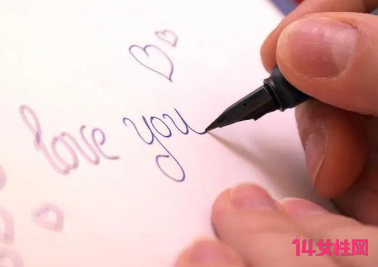 love you
14女性网